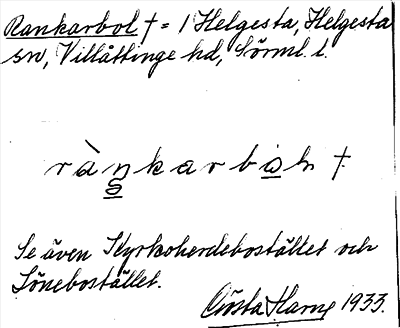 Rankarbol † = 1 Helgesta, Helgesta
sn, Villåttinge hd, Sörml. l.
ràn̲karbo̲ln †.
Se även Kyrkoherdebostället och
Lönebostället.
Gösta Harne 1933.